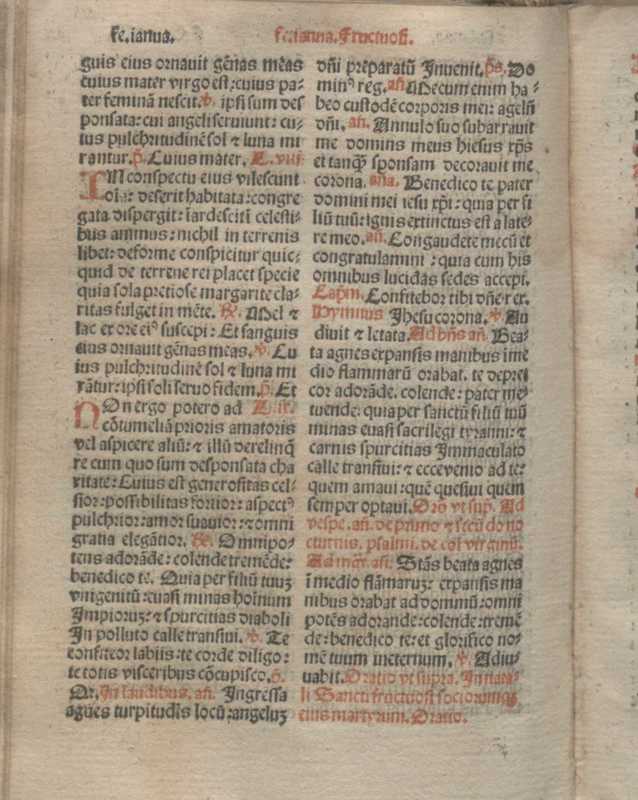 Fe. ianua.
guis eius ornauit gēnas mēas
cuius mater virgo est: cuius pa-
ter feminā nescit. ℣. ipsi sum des
ponsata: cui angeli seruiunt: cu-
ius pulchritudinē sol ⁊ luna mi
rantur. p̄. Cuius mater. L. viij
IN conspectu eius vilescunt
oīa: deserit habitata: congre
gata dispergit: iardescit celesti-
bus animus: nichil in terrenis
libet: deforme conspicitur quic-
quid de terrene rei placet specie
quia sola pretiose margarite cla-
ritas fulget in mēte. ℟. Mel ⁊
lac ex ore eiꝰ suscepi: Et sanguis
eius ornauit gēnas meas. ℣. Cu
ius pulchritudinē sol ⁊ luna mi
rātur: ipsi soli seruo fidem. p̄. Et
NOn ergo potero ad L. ix.
cōtumeliā prioris amatoris
vel aspicere aliū: ⁊ illū derelinq̄
re cum quo sum desponsata cha
ritate: Cuius est generositas cel-
sior: possibilitas fortior: aspectꝰ
pulchrior: amor suauior: ⁊ omni
gratia elegātior. ℟. Omnipo-
tens adorāde: colende tremēde:
benedico te. Quia per filiū tuuꝫ
vnigenitū: euasi minas hoīnum
Impioruꝫ: ⁊ spurcitias diaboli
In polluto calle transiui. ℣. Te
confiteor labijs: te corde diligo:
te totis visceribus cōcupisco. p̄.
Qr. In laudibus. añ. Ingressa
agnes turpitudīs locū: angeluꝫ
Fe. ianua. Fructuosi.
dñi preparatū Inuenit. p̄s. Do
minꝰ reg. añ. Mecum enim ha-
beo custodē corporis mei: agelū
dñi. añ. Annulo suo subarrauit
me dominus meus hiesus xp̄s
et tanqȝ sponsam decorauit me
corona. aña. Benedico te pater
domini mei iesu xp̄i: quia per fi
liū tuū: ignis extinctus est a late-
re meo. añ. Congaudete mecū et
congratulamini: quia cum his
omnibus lucidas sedes accepi.
Capm̄. Confitebor tibi dñe rex.
Hymnus Jhesu corona. ℣. Au
diuit ⁊ letata. Ad bñs añ. Bea-
ta agnes expansis manibus ime
dio flammarū orabat. te depre
cor adorāde. colende: pater me-
tuende: quia per sanctū filiū tuū
minas euasi sacrilegi tyranni: ⁊
carnis spurcitias Immaculato
calle transiui: ⁊ ecce venio ad te:
quem amaui: quē quesiui quem
semper optaui. Orō vt sup̄. Ad
vespe. añ. de primo ⁊ scd̄o no
cturnis. psalmi. de cōi virginū.
Ad mag̃. añ. Stās beata agnes
ī medio flāmaruꝫ: expansis ma
nibus orabat ad dominū: omni
potēs adorande: colende: tremē
de: benedico te: et glorifico no-
mē tuum ineternum. ℣. Adiu-
uabit. Oratio vt supra. In nata-
li Sancti fructuosi sociorumqȝ
eius martyrum. Oratio.